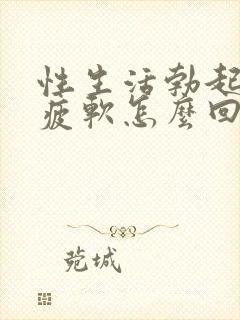 性生活勃起
疲軟怎麼回
菀城